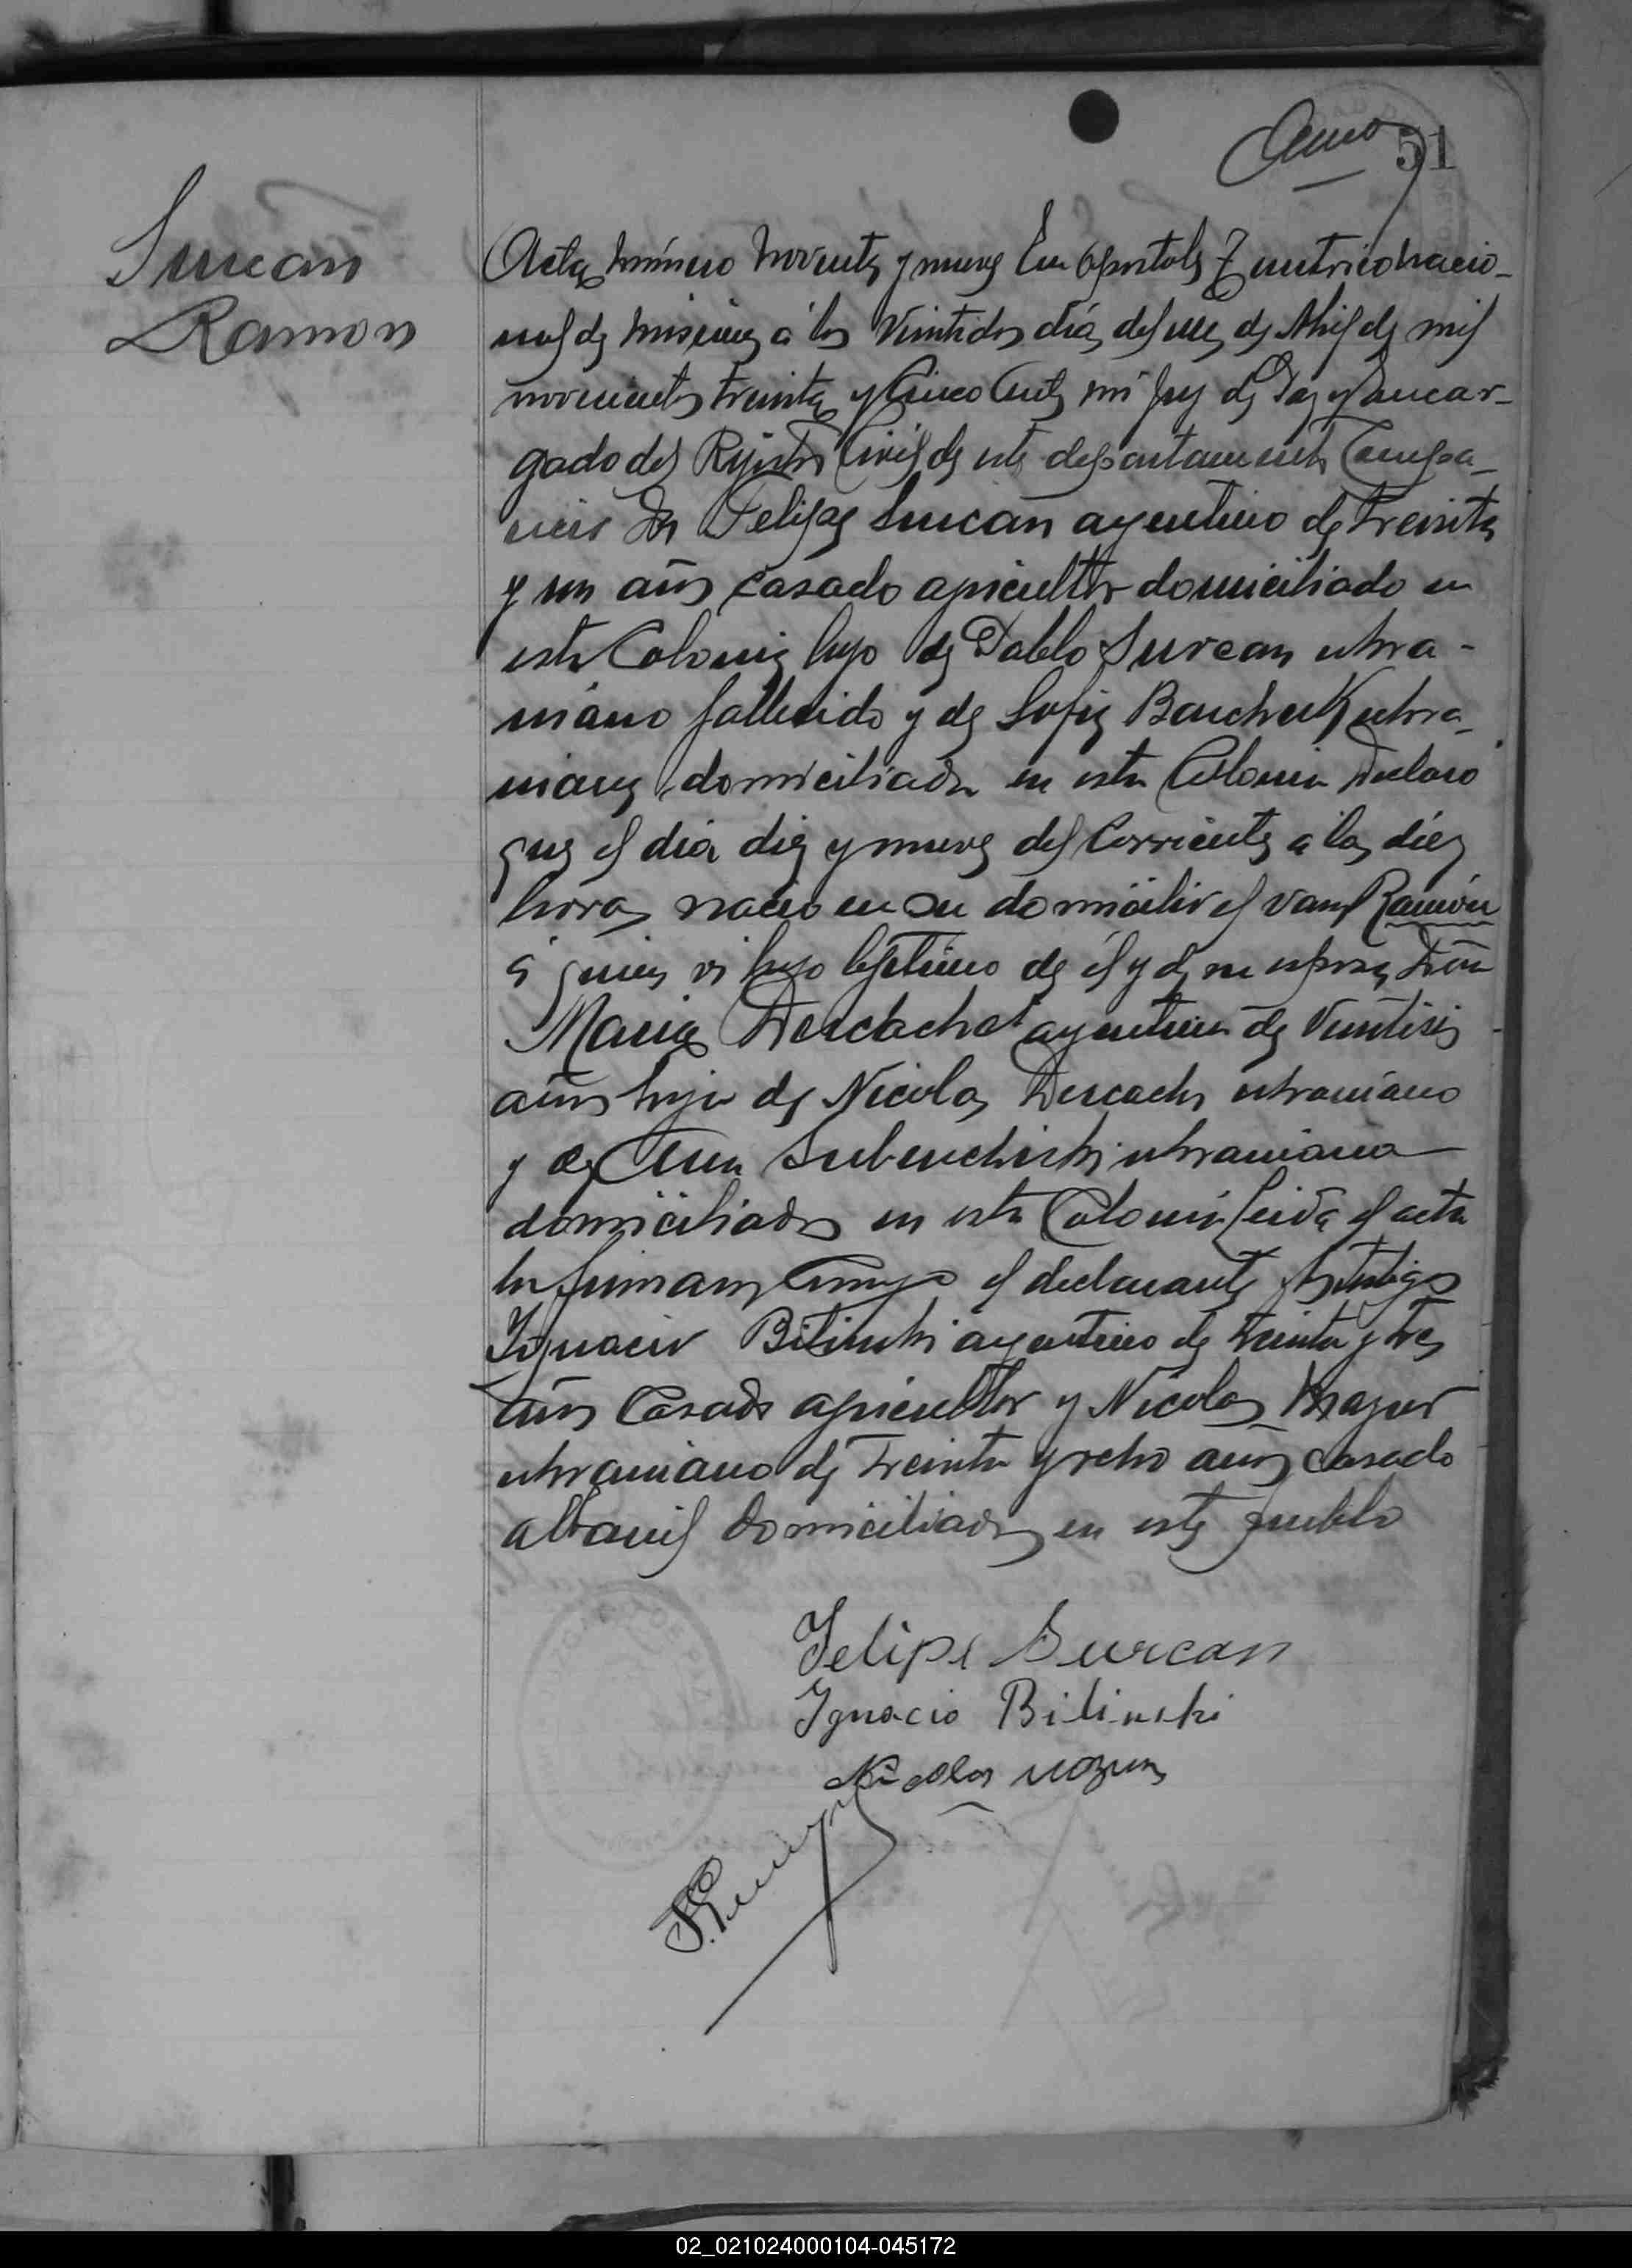 51
Surcan
Ramon
Acta número noventa y nueve En Apostoles Territorio Nacio-
nal de Misiones á los Veintidos dias del mes de Abril de mil
novecientos treinta y Cinco Ante mi Juez de Paz y Encar-
gado del Registro Civil de este departamento Compa-
reció Don Felipe Surcan argentino de treinta
y un años casado agricultor domiciliado en
esta Colonia hijo de Pablo Surcan ukra-
niano fallecido y de Sofia ukra-
niana domiciliada en esta Colonia Declaro
que el dia diez y nueve del Corriente a las diez
horas nacio en su domicilio el varon Ramón
á quien vi hijo lejitimo de él y de su esposa Doña
Maria argentina de Veintiseis
años hija de Nicolas ukraniano
y de Ana ukraniana
domiciliados en esta Colonia Leida el acta
la firmaron Conmigo el declarante y los testigos
Ignacio Bilinski argentino de treinta y tres
años Casado agricultor y Nicolas Mazur
ukraniano de treinta y ocho años casado
albañil domiciliados en este pueblo
Felipe Surcan
Ignacio Bilinski
Nicolas Mozur
02_021024000104-045172